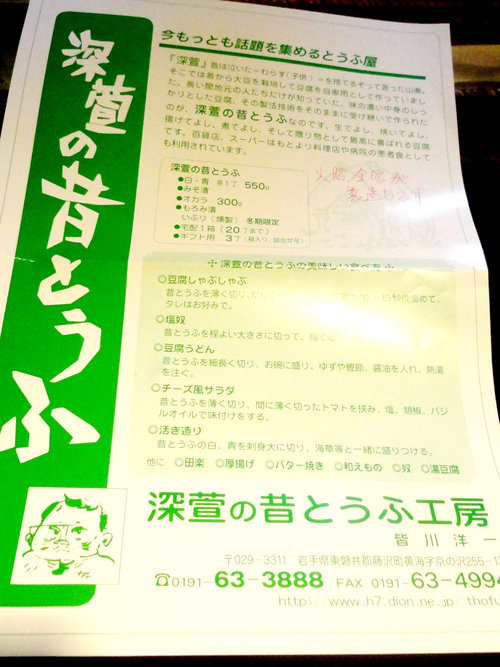 深萱の昔とうふ
今もっとも話題を集めるとうふ屋
『深萱』昔は泣いた=わらす(子供)=を捨てるぞって言った山奥。
そこでは昔から大豆を栽培して豆腐を自家用として作っていまし
た。長い間地元の人たちだけが知っていた、味の濃い中身のしっ
かりとした豆腐、その製法技術をそのままに受け継いで作られた
のが、深萱の昔とうふなのです。生でよし、焼いてよし、
揚げてよし、煮てよし、そして贈り物として最高に喜ばれる豆腐
です。百貨店、スーパーはもとより料理店や病院の患者食として
も利用されています。
深萱の昔とうふ
●白・青 各1丁 550g
●みそ漬
●オカラ 300g
●もろみ漬
いぶり(燻製) 冬期限定
●宅配1箱(20丁まで)
●ギフト用 3丁(箱入り、詰合せ可)
製造
深萱の昔とうふの美味しい食べ方
◎豆腐しゃぶしゃぶ
昔とうふを薄く切り、 15秒位温めて、
タレはお好みで。
◎塩奴
昔とうふを程よい大きさに切って、指で
◎豆腐うどん
昔とうふを細長く切り、お碗に盛り、ゆずや鰹節、醤油を入れ、熱湯
を注ぐ。
◎チーズ風サラダ
昔とうふを薄く切り、間に薄く切ったトマトを挟み、塩、胡椒、バジ
ルオイルで味付けをする。
◎活き造り
昔とうふの白、青を刺身大に切り、海草等と一緒に盛りつける。
他に ◎田楽 ◎厚揚げ ◎バター焼き ◎和えもの ◎奴 ◎湯豆腐
深萱の昔とうふ工房
皆川洋一
〒029-3311 岩手県東磐井郡藤沢町黄海字京の沢255-1
☎0191-63-3888 FAX 0191-63-4994
http://www.h7.dion.ne.jp/thofu